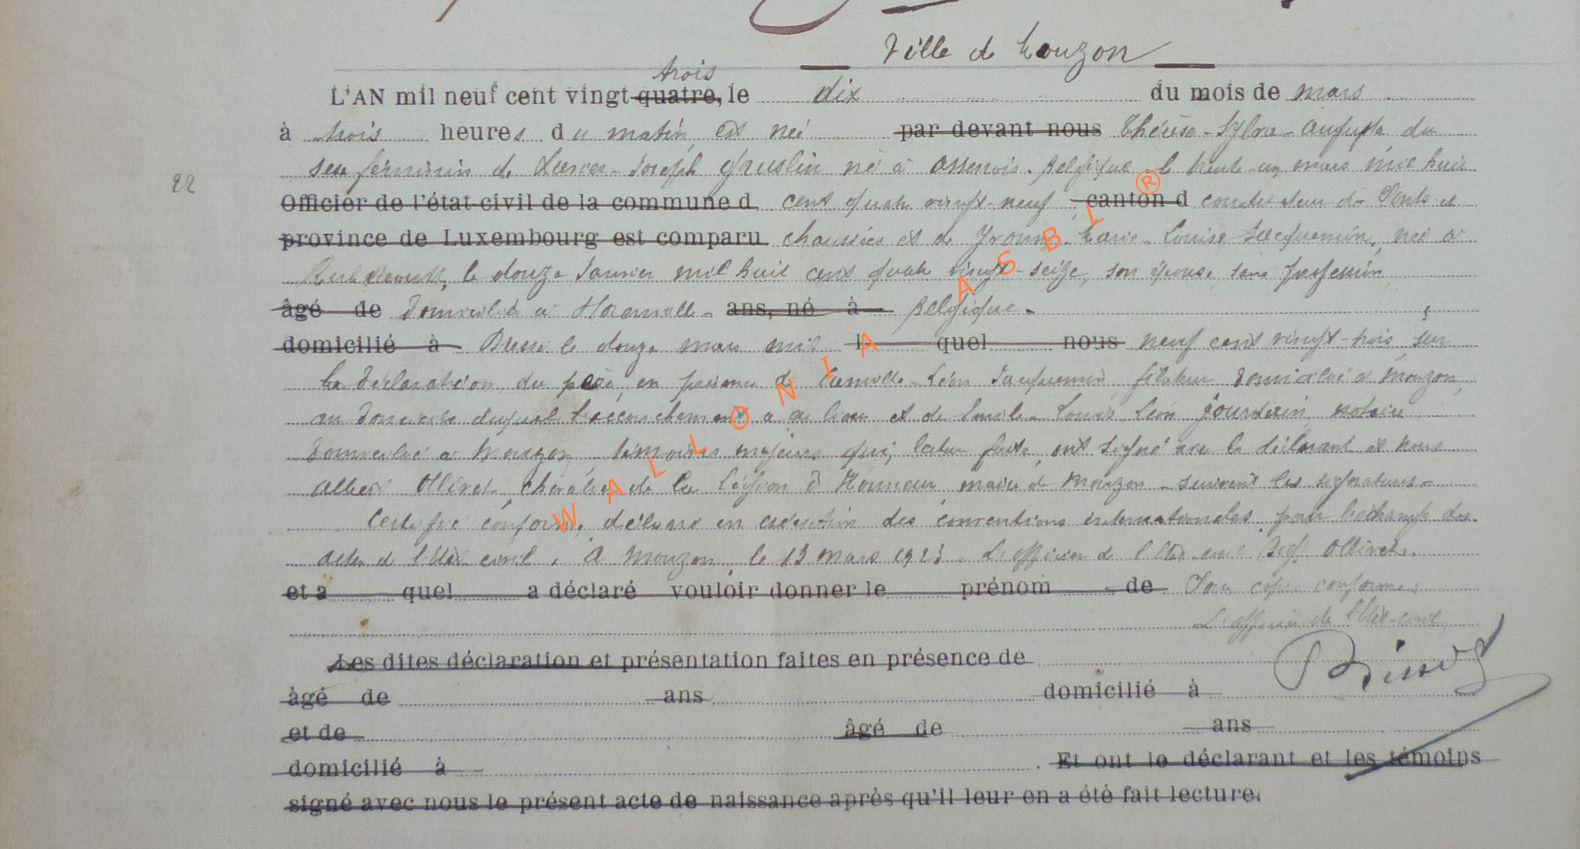 Ville de Mouzon
trois
L'AN mil neuf cent vingt quatre, le dix du mois de mars
à trois heures du matin, est née par devant nous Thérèse-Sylva-Augusta du
sexe féminin de Joseph né à Assenois. Belgique le trente-un mars mil huit
Officier de l'état civil de la commune d cent quatre vingt-neuf canton d conducteur des Ponts et
province de Luxembourg est comparu chaussées et de Yvonne Marie-Louise Jacquemin, née à
le douze Janvier mil huit cent quatre vingt-seize, son épouse, sans profession
âgé de domiciliés à ans, né à Belgique.
domicilié à Dressé le douze mars mil l quel nous neuf cent vingt-trois, sur
la déclaration du père, en présence de Camille-Léon Jacquemin domicilié à Mouzon,
au domicile duquel l'accouchement a eu lieu et de Emile-Louis Léon Jourdain notaire
domicilié à Mouzon témoins majeurs qui, lecture faite, ont signé avec le déclarant et nous
Albert Ollivet, chevalier de la Légion d'Honneur, maire de Mouzon - suivent les signatures.
Certifié conforme, délivré en exécution des conventions internationales pour l'échange des
actes de l'état civil. A Mouzon, le 13 mars 1923. L'officier de l'état civil Ollivet.
et a quel a déclaré vouloir donner le prénom de Pour copie conforme
L'officier de l'Etat-civil,
Les dites déclaration et présentation faites en présence de
âgé de ans domicilié à
et de âgé de ans
domicilié à . Et ont le déclarant et les témoins
signé avec nous le présent acte de naissance après qu'il leur en a été fait lecture.
22
WALLONIA ASBL ®